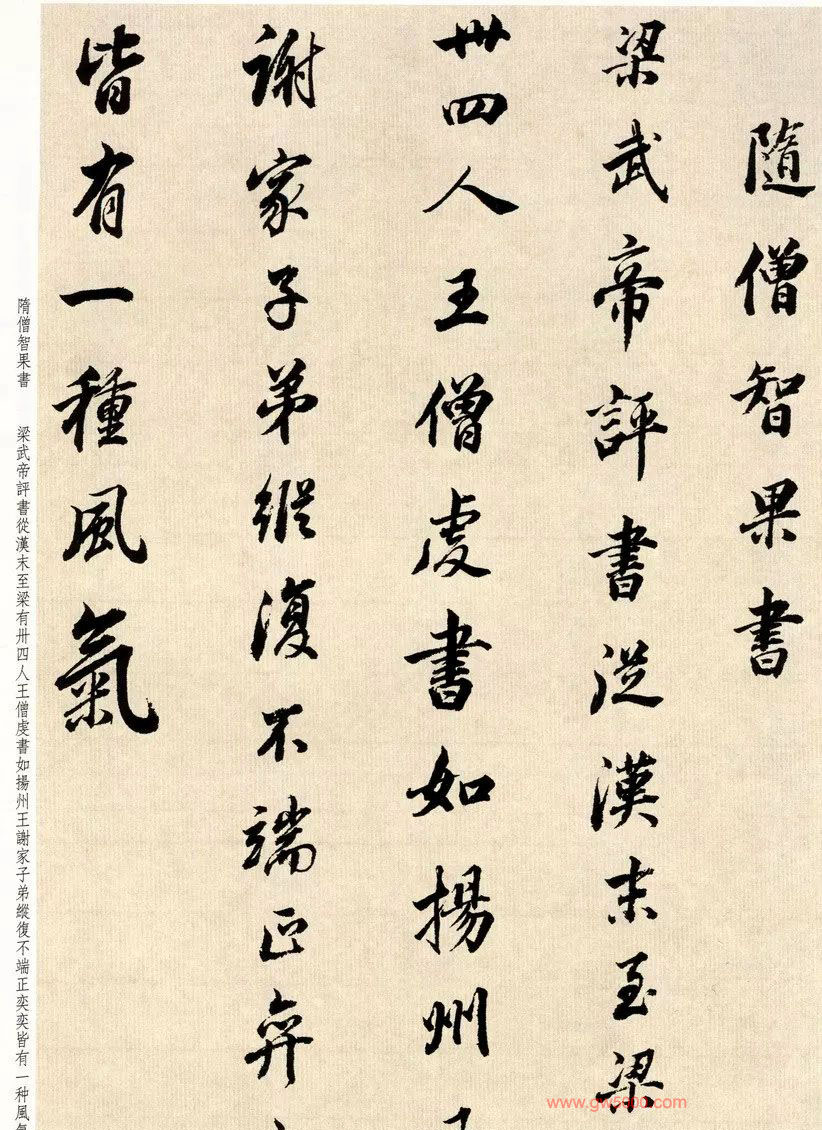 隨僧智果書
梁武帝評書從漢末至梁
卅四人王僧虔書如揚州
謝家子弟縱復不端正奕
皆有一種風氣
隋僧智果書　梁武帝評書從漢末至梁有卅四人王僧虔書如揚州王謝家子弟縱復不端正奕奕皆有一种風
www.gw5000.com